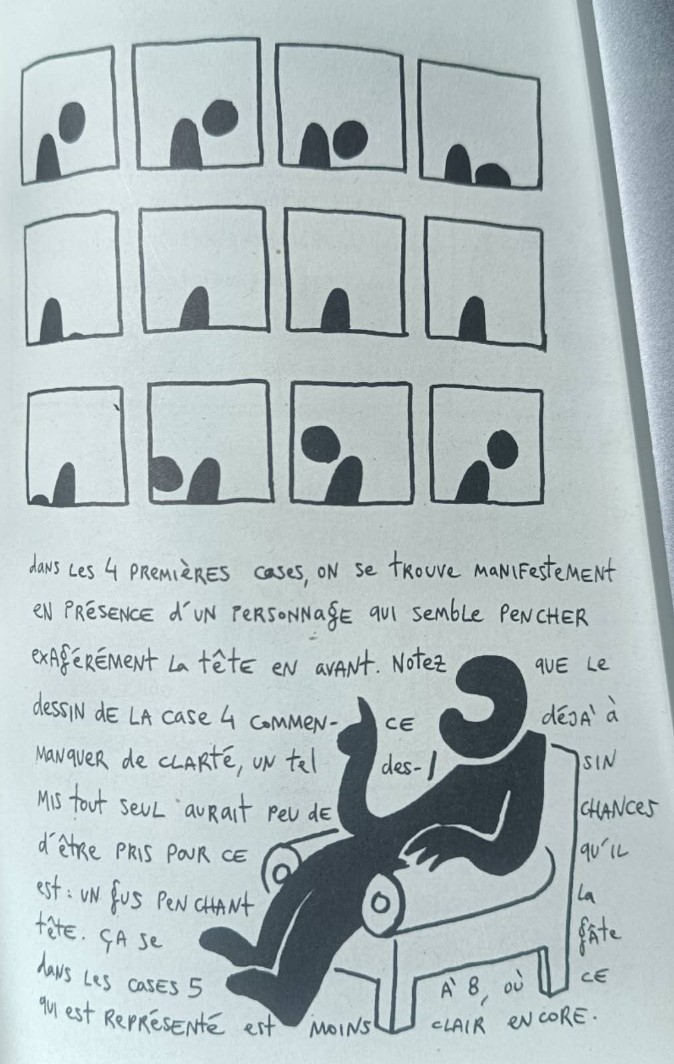 dans les 4 premières cases, on se trouve manifestement
en présence d'un personnage qui semble pencher
exagérément la tête en avant. Notez que le
dessin de la case 4 commence déjà à
manquer de clarté, un tel des-/sin
mis tout seul aurait peu de chances
d'être pris pour ce qu'il
est : un gus penchant la
tête. Ça se gâte
dans les cases 5 à 8, où ce
qui est représenté est moins clair encore.